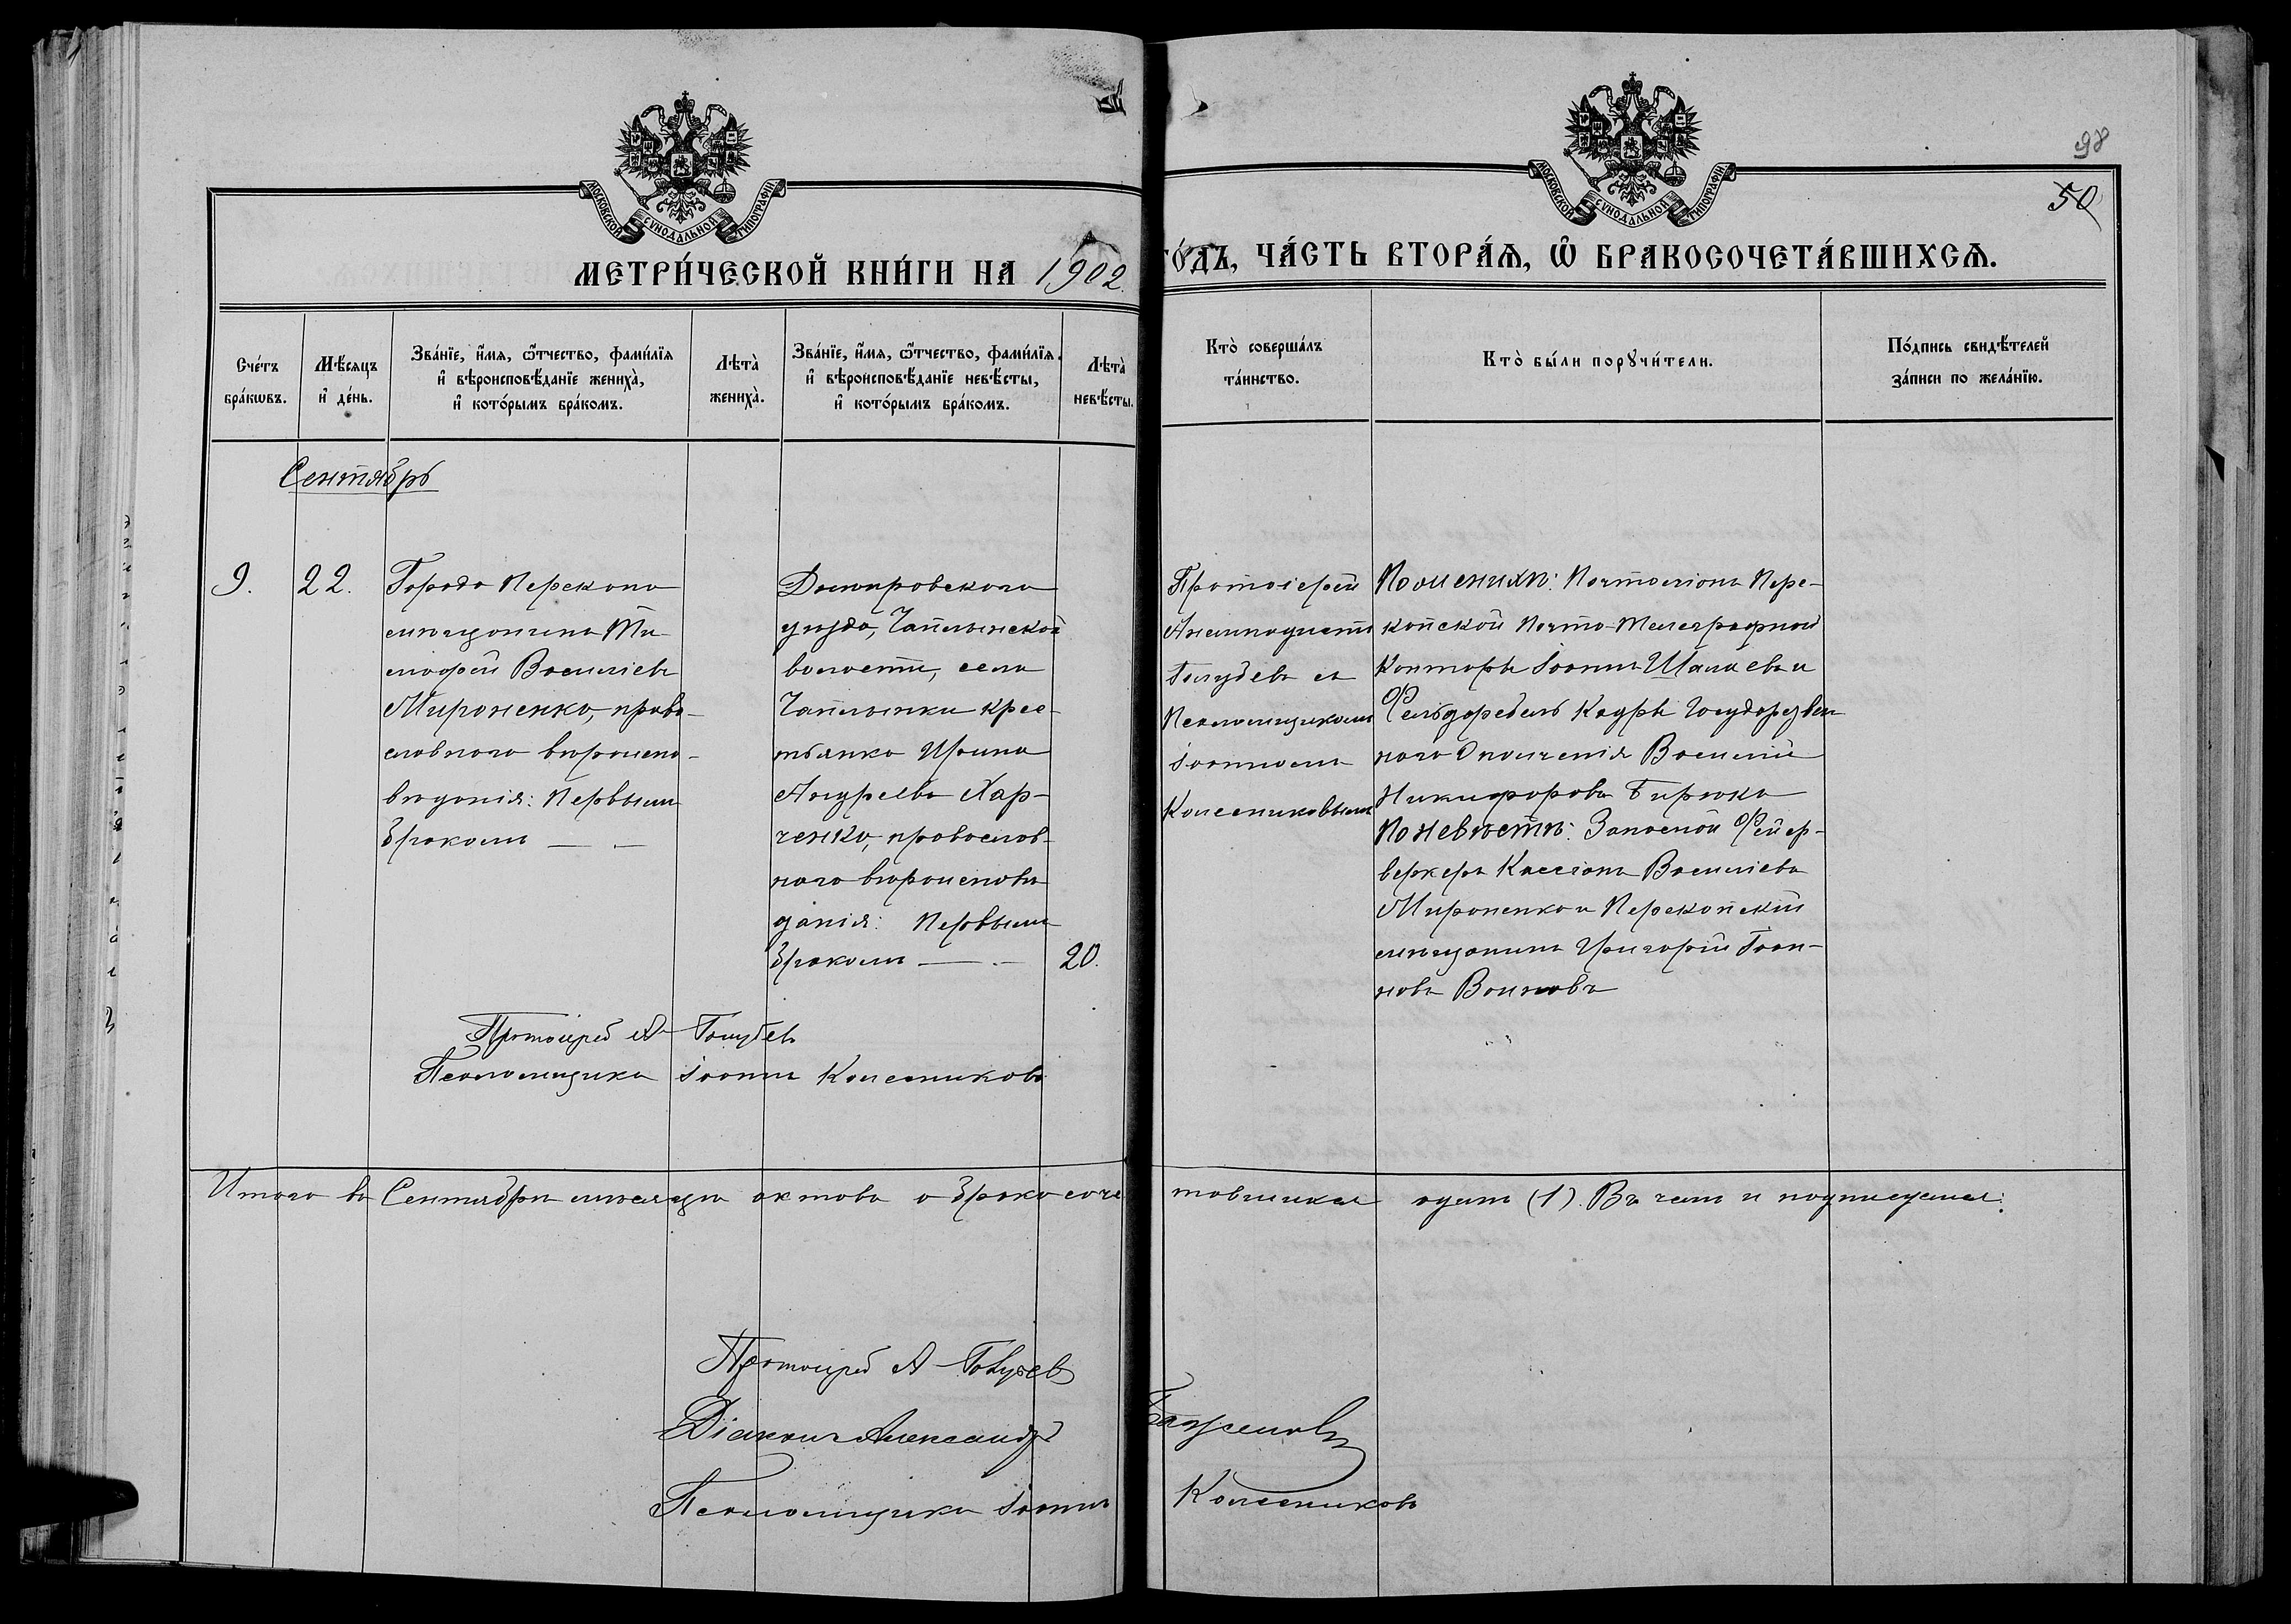 98
50
МОСКОВСКОЙ СУНОДАЛЬНОЙ ТИПОГРАФІИ
МОСКОВСКОЙ СУНОДАЛЬНОЙ ТИПОГРАФІИ
МЕТРИ́ЧЕСКОЙ КНИ́ГИ НА 1902 ГО́ДЪ, ЧА́СТЬ ВТОРА́Ѧ, Ѽ БРАКОСОЧЕТА́ВШИХСѦ.
Сче́тъ
бра́кѡвъ.
Мѣ́сяцъ
и҆ де́нь.
Зва́нїе, и҆́мя, ѻ҆́тчество, фами́лїя
и҆ вѣроисповѣ́данїе жениха̀,
и҆ кото́рымъ бра́комъ.
Лѣта̀
жениха̀.
Зва́нїе, и҆́мя, ѻ҆́тчество, фами́лїя
и҆ вѣроисповѣ́данїе невѣ́сты,
и҆ кото́рымъ бра́комъ.
Лѣта̀
невѣ́сты.
Кто̀ соверша́лъ
та́инство.
Кто̀ бы́ли порꙋчи́тели.
По́дпись свидѣ́телей
за́писи по жела́нїю.
Сентябрь
9.
22.
Города Перекопа
мѣщанинъ Ти-
мофей Василіевъ
Мироненко, право-
славнаго вѣроиспо-
вѣданія: первымъ
бракомъ — —
Днѣпровскаго
уѣзда, Чаплынской
волости, села
Чаплынки крес-
тьянка Ирина
Андреева Хар-
ченко, православ-
наго вѣроисповѣ
данія: первымъ
бракомъ — —
20.
Протоіерей
Анемподистъ
Голубевъ съ
Псаломщикомъ
Іоанномъ
Колесниковымъ
По женихѣ: Почталіонъ Пере-
копской Почто-Телеграфной
Конторы Іоаннъ Шамаевъ и
Фельдфебель Кадра Государствен
наго Ополченія Василій
Никифоровъ Бирюковъ
По невѣстѣ: Запасной Фейер-
веркеръ Кассіанъ Василіевъ
Мироненко и Перекопскій
мѣщанинъ Григорій Іоан-
новъ Воиновъ
Протоіерей А Голубев
Псаломщикъ Іоаннъ Колесниковъ
Итого въ Сентябрѣ мѣсяцѣ актовъ о бракосоче тавшихся одинъ (1). Въ чемъ и подписуемся:
Протоіерей А Голубев
Діаконъ Александръ Баженовъ
Псаломщикъ Іоаннъ Колесниковъ